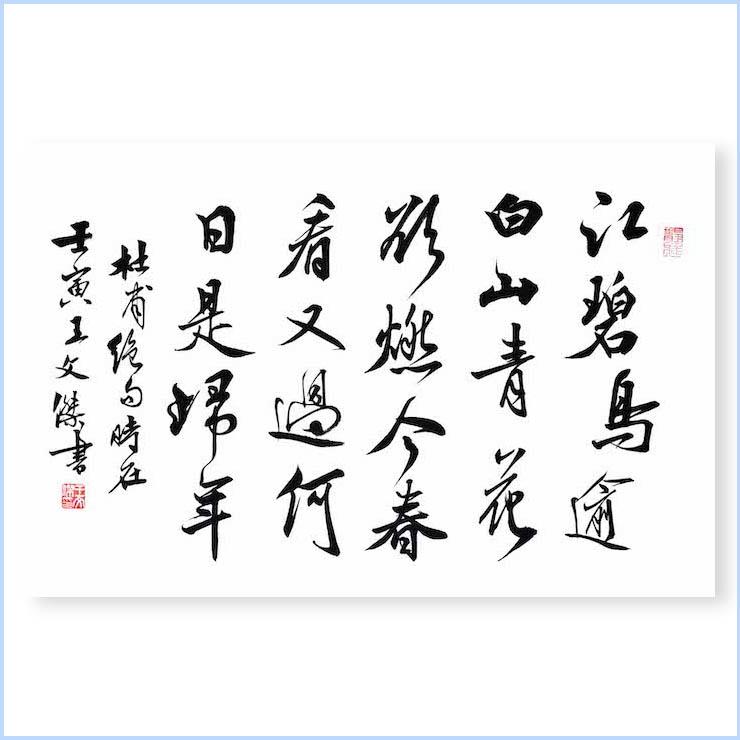 江碧鸟逾
白山青花
欲燃今春
看又過何
日是歸年
杜甫絶句時在
壬寅王文傑書